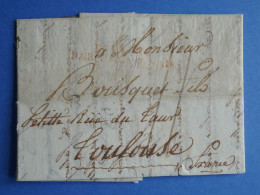 a Monsieur
Bousquet fils
petitte Rüe du Taur
Toulouse
France